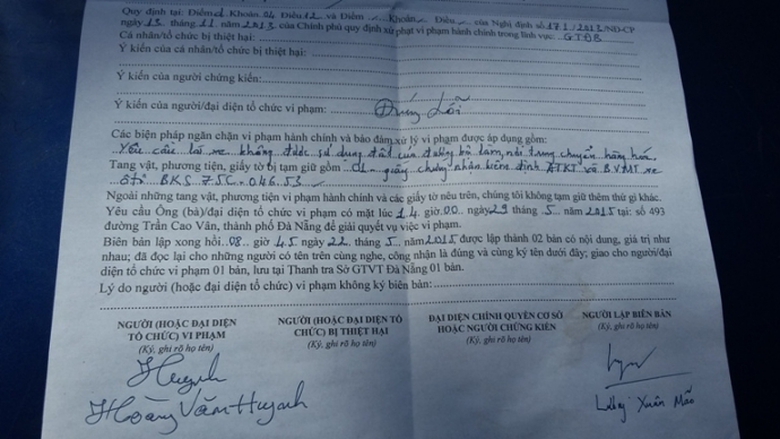 Quy định tại: Điểm d Khoản 04 Điều 12 và Điểm ... Khoản ... Điều ... của Nghị định số 171/2013/NĐ-CP
ngày 13 tháng 11 năm 2013 của Chính phủ quy định xử phạt vi phạm hành chính trong lĩnh vực: GTĐB
Cá nhân/tổ chức bị thiệt hại:
Ý kiến của cá nhân/tổ chức bị thiệt hại:
Ý kiến của người chứng kiến:
Ý kiến của người/đại diện tổ chức vi phạm: Đúng Lỗi
Các biện pháp ngăn chặn vi phạm hành chính và bảo đảm xử lý vi phạm được áp dụng gồm:
Yêu cầu lái xe không được sử dụng đất của đường bộ làm nơi trung chuyển hàng hóa.
Tang vật, phương tiện, giấy tờ bị tạm giữ gồm 01 giấy chứng nhận kiểm định ATKT và BVMT xe
ôtô BKS 75C-046.53
Ngoài những tang vật, phương tiện vi phạm hành chính và các giấy tờ nêu trên, chúng tôi không tạm giữ thêm thứ gì khác.
Yêu cầu Ông (bà)/đại diện tổ chức vi phạm có mặt lúc 14 giờ 00 ngày 29 tháng 5 năm 2015 tại: số 493
đường Trần Cao Vân, thành phố Đà Nẵng để giải quyết vụ việc vi phạm.
Biên bản lập xong hồi 08 giờ 45 ngày 22 tháng 5 năm 2015 được lập thành 02 bản có nội dung, giá trị như
nhau; đã đọc lại cho những người có tên trên cùng nghe, công nhận là đúng và cùng ký tên dưới đây; giao cho người/đại
diện tổ chức vi phạm 01 bản, lưu tại Thanh tra Sở GTVT Đà Nẵng 01 bản.
Lý do người (hoặc đại diện tổ chức) vi phạm không ký biên bản:
NGƯỜI (HOẶC ĐẠI DIỆN
TỔ CHỨC) VI PHẠM
(Ký, ghi rõ họ tên)
Huynh
Hoàng Văn Huynh
NGƯỜI (HOẶC ĐẠI DIỆN TỔ
CHỨC) BỊ THIỆT HẠI
(Ký, ghi rõ họ tên)
ĐẠI DIỆN CHÍNH QUYỀN CƠ SỞ
HOẶC NGƯỜI CHỨNG KIẾN
(Ký, ghi rõ họ tên)
NGƯỜI LẬP BIÊN BẢN
(Ký, ghi rõ họ tên)
Xuân Mão